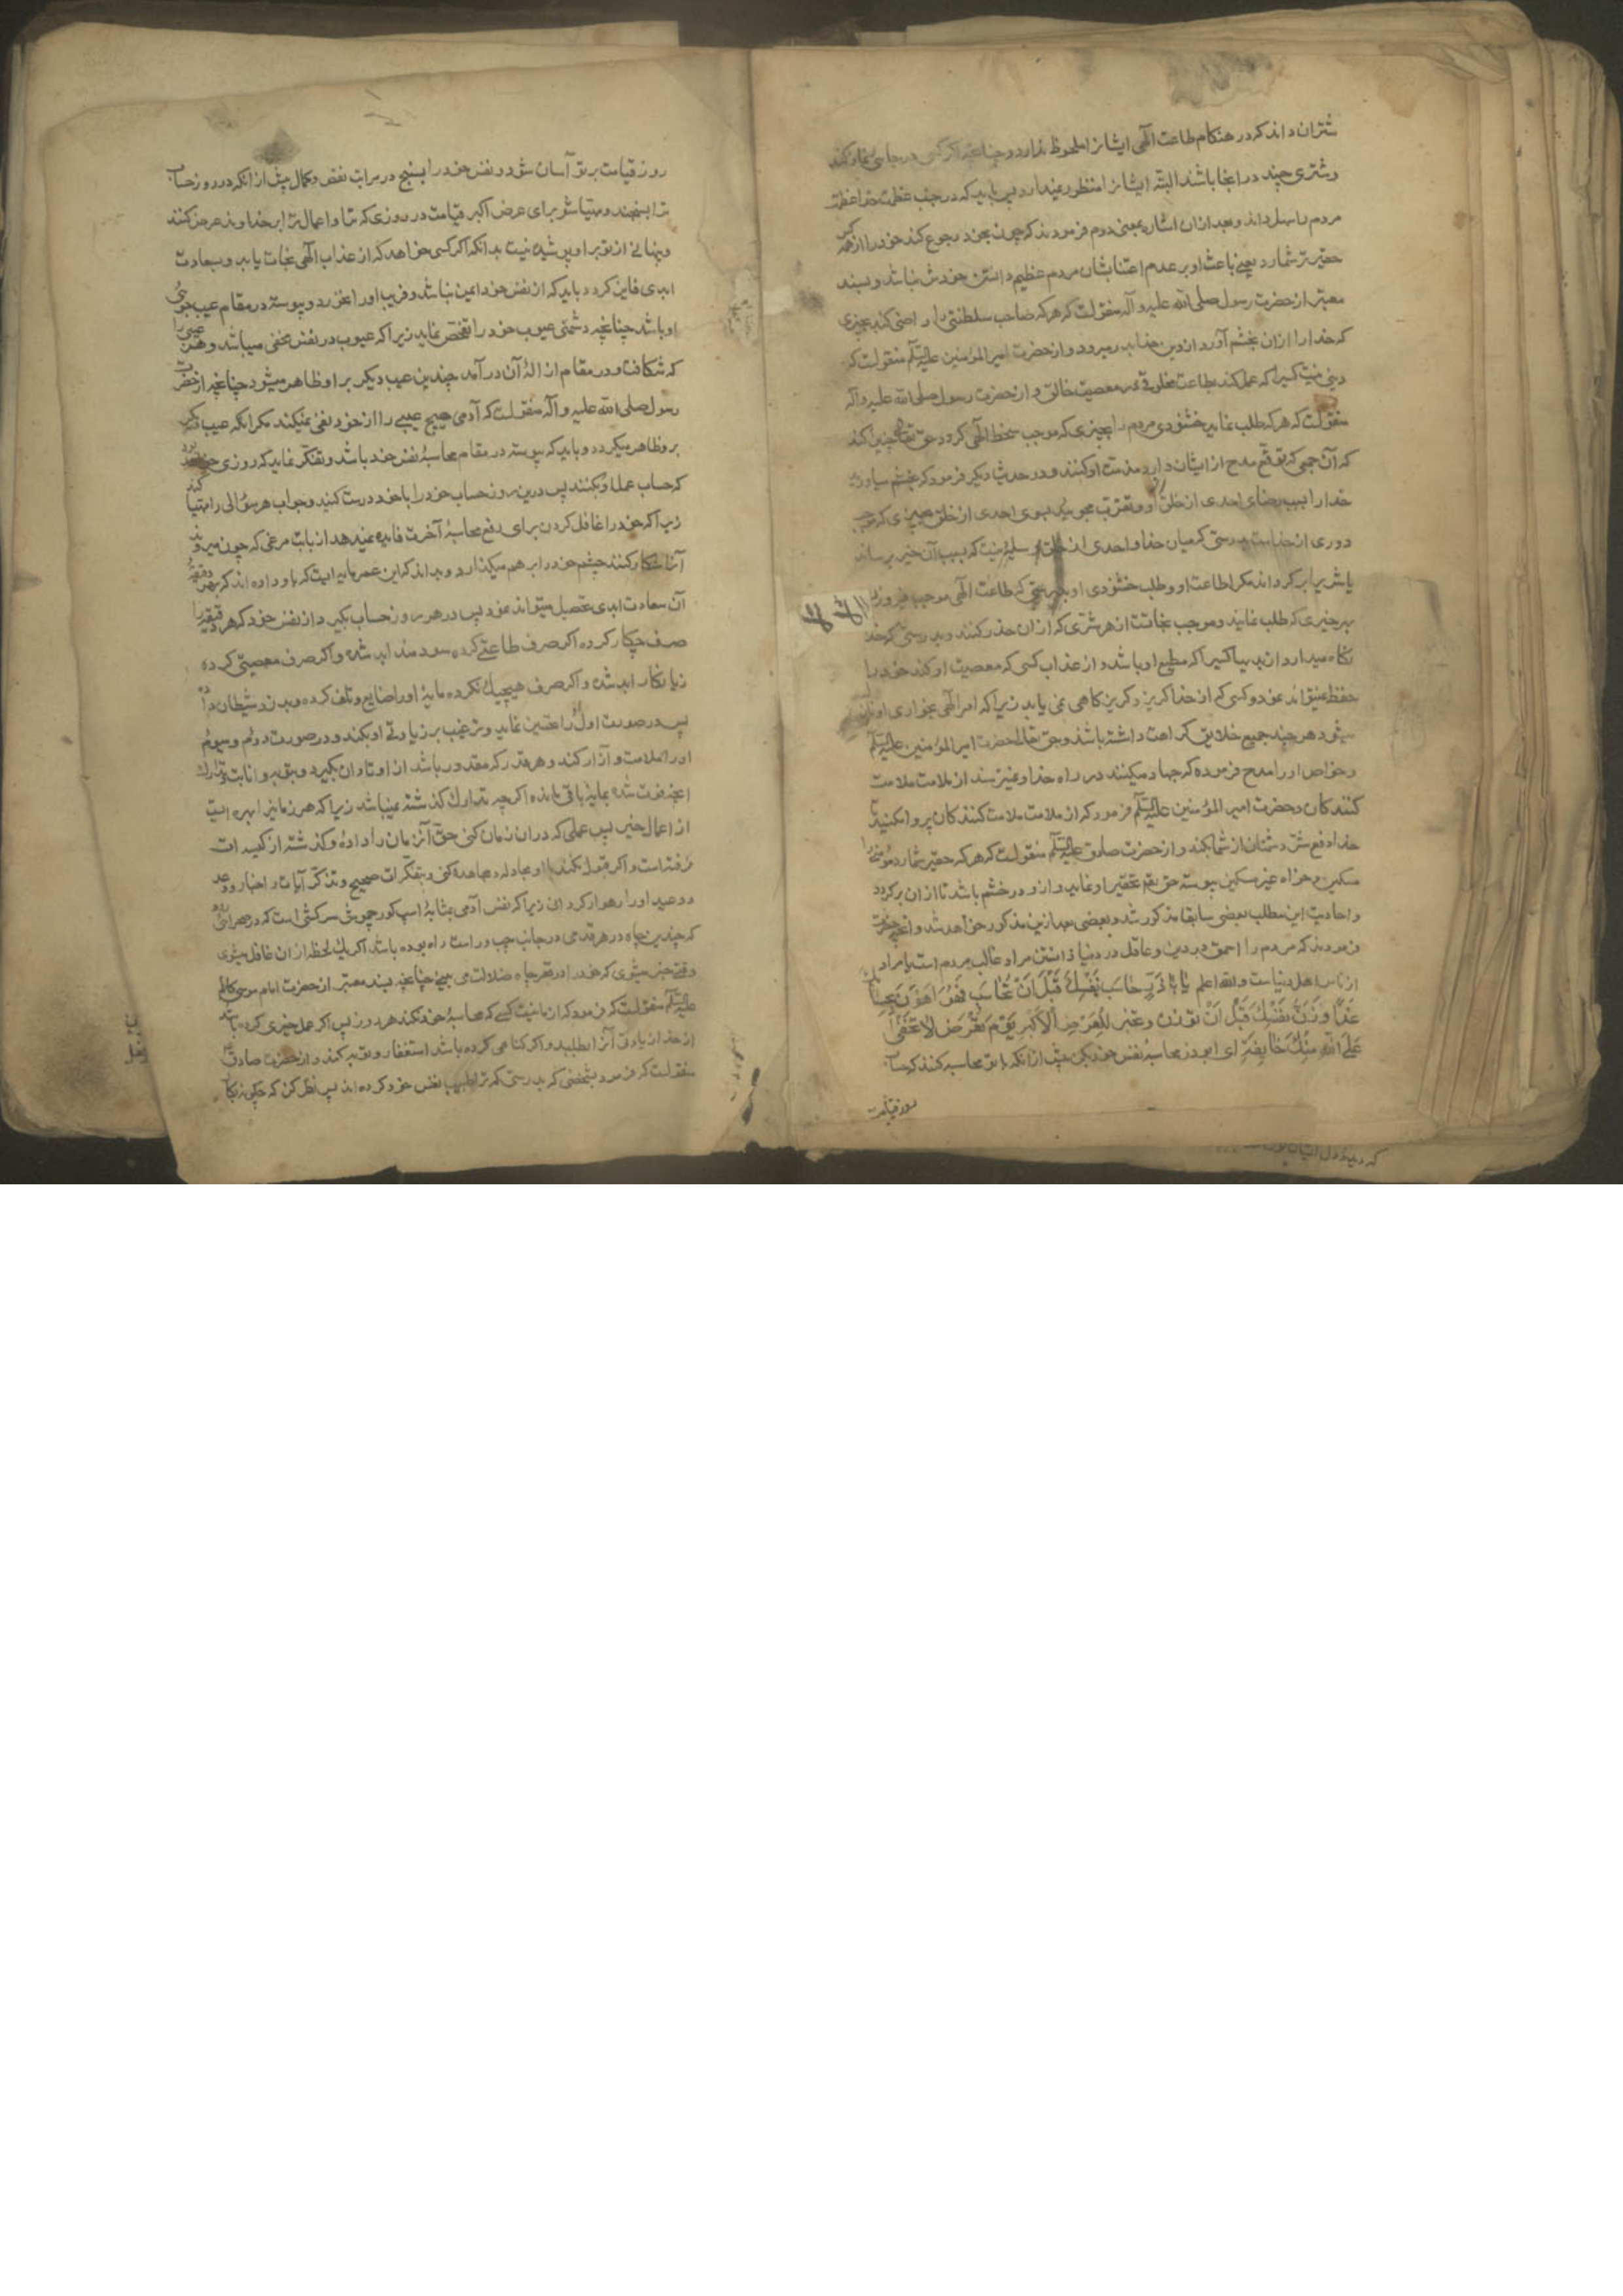 شتران داند که در هنکام طاعت الهی ایشانرا ملحوظ ندارد چنانچه اکر کسی در جایی نماز کند
و شتری چند در انجا باشد البته ایشانرا منظور نمیدارد پس باید که در جنب عظمت خدا عظمت
مردم را سهل داند و بعد از ان اشاره بمعنی دوم فرمودند که چون بخود رجوع کند خود را از همه کس
حقیرتر شمارد یعنی باعث او بر عدم اعتنا بشان مردم عظیم دانستن خودش نباشد و بسند
معتبر از حضرت رسول صلی الله علیه و آله منقولست که هر که صاحب سلطنتی را راضی کند بچیزی
که خدا را از ان بخشم آورد از دین خدا بدر میرود و از حضرت امیر المؤمنین علیه السلم منقولست که
دینی نیست کسیرا که عمل کند بطاعت مخلوقی در معصیت خالق و از حضرت رسول صلی الله علیه و آله
منقولست که هر که طلب نماید خشنودی مردم را بچیزی که موجب سخط الهی کردد حق تعالی چنین کند
که آن جمعی که توقع مدح از ایشان دارد مذمت او کنند و در حدیث دیکر فرمود که بخشم میاورید
خدا را بسبب رضای احدی از خلق او و تقرب مجویید بسوی احدی از خلق بچیزی که موجب
دوری از خداست بدرستی که میان خدا و احدی از خلق وسیله نیست که بسبب آن خیر برساند
یا شر برابر کرداند مکر اطاعت او و طلب خشنودی او بدرستی که طاعت الهی موجب فیروزی
بهر چیزی که طلب نمایند و موجب نجاتست از هر شری که از ان حذر کنند و بدرستی که خدا
نکاه میدارد از بدیها کسیرا که مطیع او باشد و از عذاب کسی که معصیت او کند خود را
حفظ نمیتواند نمود و کسی که از خدا کریزد کریزکاهی نمی یابد زیرا که امر الهی بخواری او نازل
میشود هر چند جمیع خلایق کراهت داشته باشند و حق تعالی حضرت امیر المؤمنین علیه السلم
و خواص او را مدح فرموده که جهاد میکنند در راه خدا و نمیترسند از ملامت ملامت
کنندکان و حضرت امیر المؤمنین علیه السلم فرمود که از ملامت ملامت کنندکان پروا مکنید تا
خدا دفع شر دشمنان از شما بکند و از حضرت صادق علیه السلم منقولست که هر که حقیر شمارد مؤمنی را
مسکین و خواه غیر مسکین پیوسته حق تعالی تحقیر او نماید و از و در خشم باشد تا از ان برکردد
و احادیث این مطلب بعضی سابقا مذکور شد و بعضی بعد ازین مذکور خواهد شد و انچه حضرت
فرمودند که مردم را احمق در دین و عاقل در دنیا دانستن مراد غالب مردم است یا مراد
از ناس اهل دنیاست والله اعلم یا با ذر حاسب نفسک قبل ان تحاسب فهو اهون لحسابک
غدا و زن نفسک قبل ان توزن و تجهز للعرض الاکبر یوم تعرض لا تخفی
علی الله منک خافیة ای ابو ذر محاسبه نفس خود بکن پیش از انکه با تو محاسبه کنند که حساب
روز قیامت
روز قیامت بر تو آسان شود و نفس خود را بسنج در مراتب نقص و کمال پیش از آنکه در روز حساب
ترا بسنجند و مهیا شو برای عرض اکبر قیامت در روزی که ترا و اعمال ترا بر خداوند عرض کنند
و پنهانی از تو بر او پوشیده نیست بدانکه اکر کسی خواهد که از عذاب الهی نجات یابد و بسعادت
ابدی فایز کردد باید که از نفس خود ایمن نباشد و فریب او را نخورد و پیوسته در مقام عیب جوئی
او باشد چنانچه دشمنی عیوب خود را تفحص نماید زیرا که عیوب در نفس مخفی میباشد و هر عیبی را
که شکافت و در مقام ازالهٔ آن درآمد چندین عیب دیکر بر او ظاهر میشود چنانچه از حضرت
رسول صلی الله علیه و آله منقولست که آدمی هیچ عیبی را از خود نفی نمیکند مکر انکه عیب دیکر
برو ظاهر میکردد و باید که پیوسته در مقام محاسبهٔ نفس خود باشد و تفکر نماید که روزی خواهد بود
که حساب عمل او بکنند پس درین روز حساب خود را با خود درست کند و جواب هر سؤالی را مهیا کند
زیرا که خود را غافل کردن برای دفع محاسبهٔ آخرت فایده نمیدهد از بابت مرغی که چون میروند
آنرا شکار کنند چشم خود را بر هم میکذارد و بداند که این عمر مایه ایست که باو داده اند که بهر دقیقهٔ
آن سعادت ابدی تحصیل میتواند نمود پس در هر روز حساب بکیرد از نفس خود که هر دقیقه را
صرف چکار کرده اکر صرف طاعتی کرده سودمند ابد شده و اکر صرف معصیتی کرده
زیانکار ابد شده و اکر صرف هیچیک نکرده مایهٔ او را ضایع و تلف کرده و بدزد شیطان داده
پس در صورت اول او را تحسین نماید و ترغیب بر زیادتی او بکند و در صورت دوم و سیوم
او را ملامت و آزار کند و هر قدر که مقدور باشد از او تاوان بکیرد و بتوبه و انابت و تدارک
انچه فوت شده بمایهٔ باقی مانده اکرچه تدارک کذشته نمیباشد زیرا که هر زمانیرا بهره ایست
از اعمال خیر پس عملی که در ان زمان کنی حق آنزمان را دادهٔ و کذشته از کیسه ات
رفته است و اکر قبول نکند با او مجادله و مجاهده کنی و بتفکرات صحیح و تذکر آیات و اخبار وعد
و وعید او را رهوار کردانی زیرا که نفس آدمی بمثابهٔ اسب کور چموش سرکشی است که در صحرائی
که چندین چاه در هر قدمی در جانب چپ و راست راه بوده باشد اکر یک لحظه از ان غافل میشوی
وقتی خبر میشوی که خود را در قعر چاه ضلالت می بینی چنانچه بسند معتبر از حضرت امام موسی کاظم
علیه السلم منقولست که فرمود که از ما نیست کسی که محاسبهٔ خود نکند هر روز پس اکر عمل خیری کرده باشد
از خدا زیادتی آنرا بطلبد و اکر کناهی کرده باشد استغفار و توبه کند و از حضرت صادق
منقولست که فرمود بشخصی که بدرستی که ترا طبیب نفس خود کرده اند پس نظر کن که چکونه با